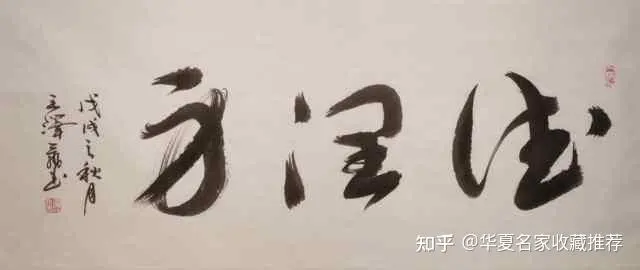 德润身
戊戌之秋月
王泽书
知乎 @华夏名家收藏推荐